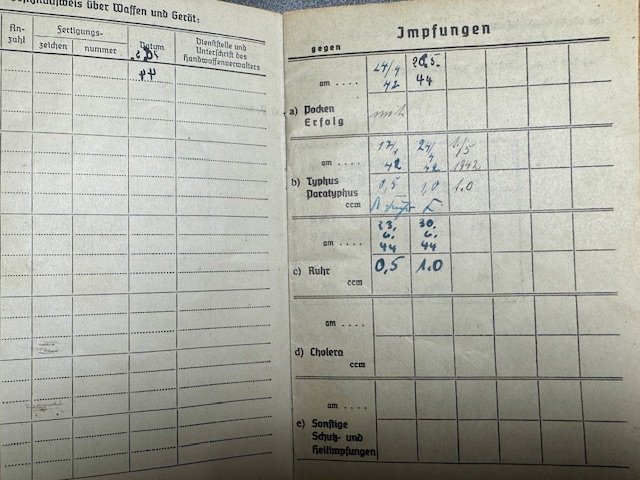 Besitznachweis über Waffen und Gerät:
An-
zahl
Fertigungs-
zeichen
nummer
Datum
Dienststelle und
Unterschrift des
Handwaffenverwalters
44
Impfungen
gegen
am . . . .
24/4
42
20.5.
44
a) Pocken
Erfolg
am . . . .
17/4
42
24/4
42
1/5
1942
b) Typhus
Paratyphus
ccm
0,5
1,0
1.0
am . . . .
23.
6.
44
30.
6.
44
c) Ruhr
ccm
0,5
1.0
am . . . .
d) Cholera
ccm
am . . . .
e) Sonstige
Schutz- und
Heilimpfungen